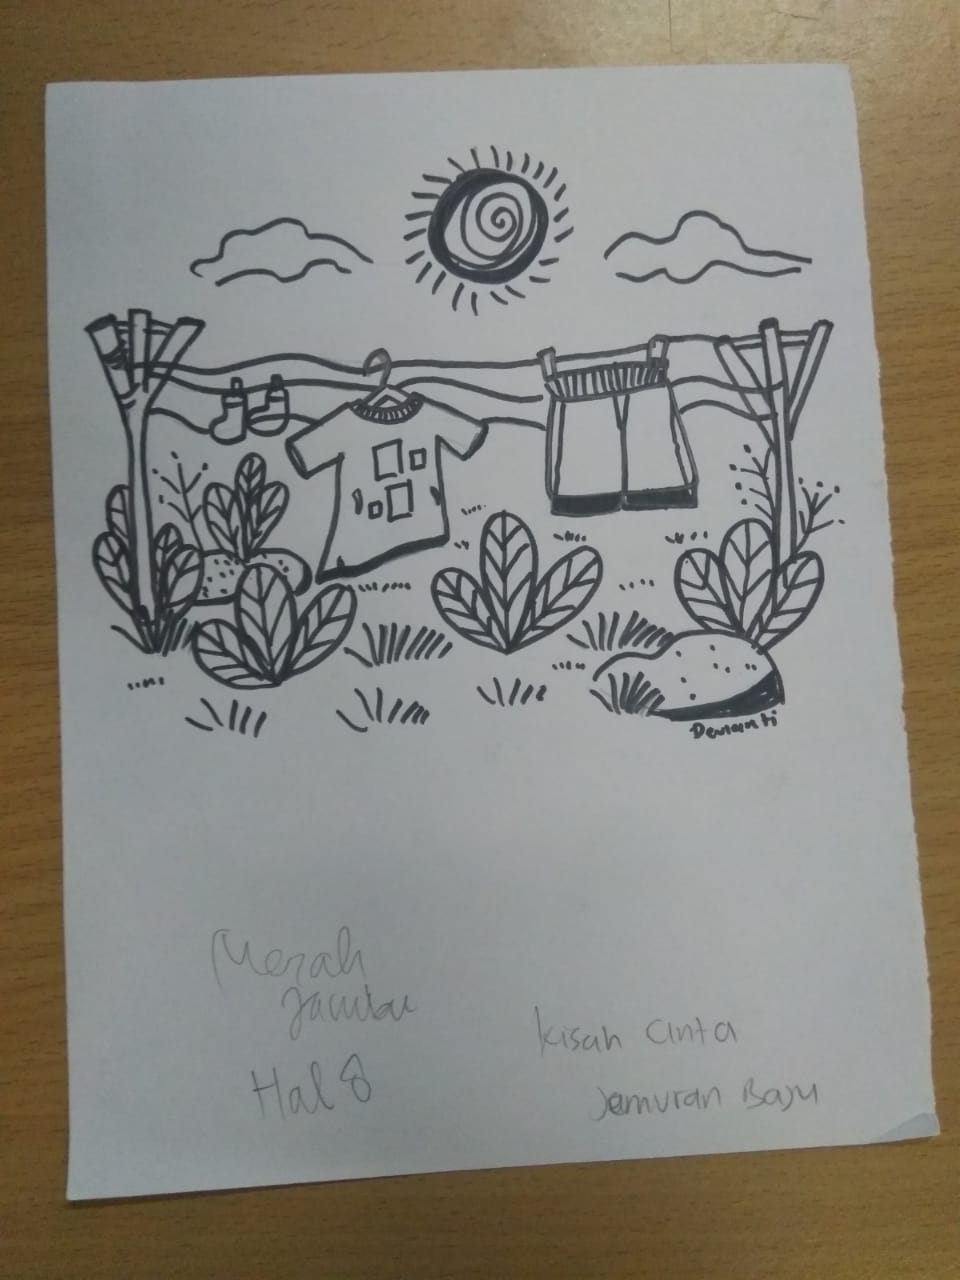 Devianti
Merah
Jambu
Hal 8
Kisah Cinta
Jemuran Baju